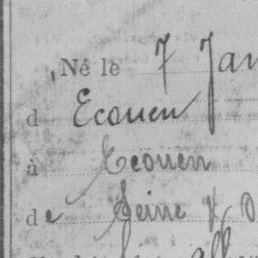 Né le 7 Jan
d Ecouen
à Ecouen
de Seine & O